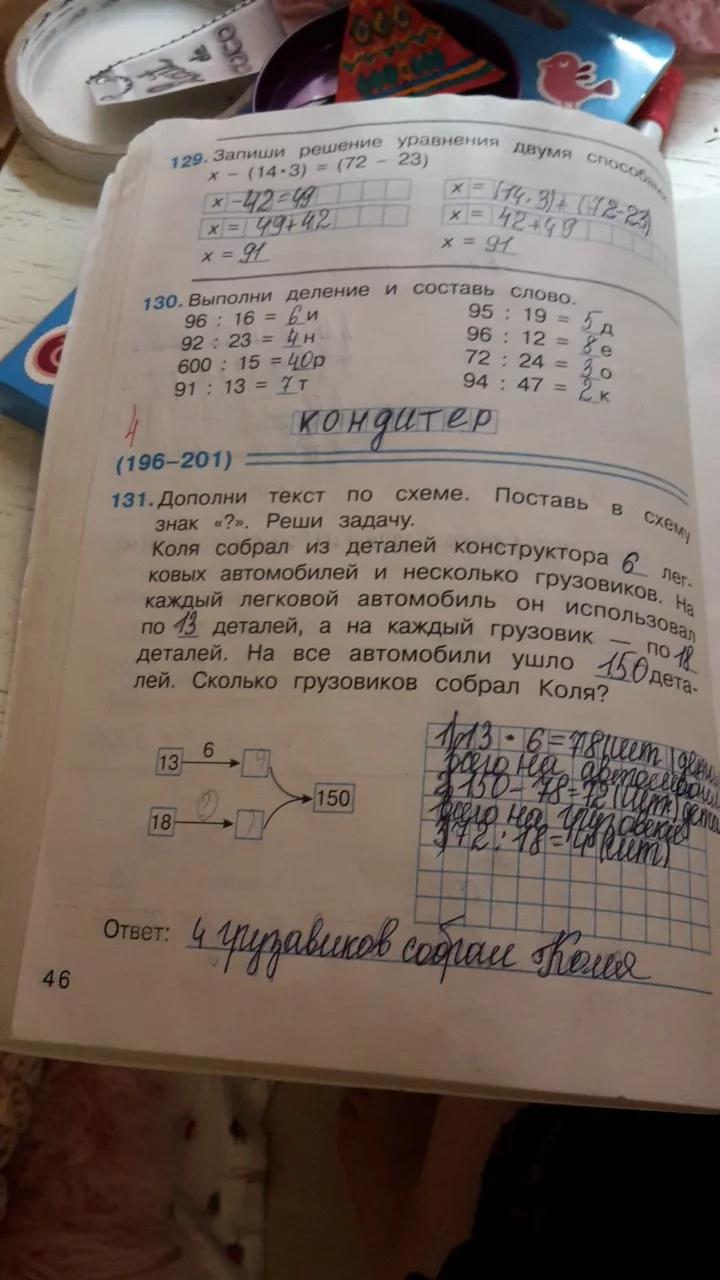 129. Запиши решение уравнения двумя способами.
x - (14·3) = (72 - 23)
x - 42 = 49
x = 49+42
x = 91
x = (14·3)+(72-23)
x = 42+49
x = 91
130. Выполни деление и составь слово.
96 : 16 = 6 и
92 : 23 = 4 н
600 : 15 = 40 р
91 : 13 = 7 т
95 : 19 = 5 д
96 : 12 = 8 е
72 : 24 = 3 о
94 : 47 = 2 к
4
кондитер
(196–201)
131. Дополни текст по схеме. Поставь в схему
знак «?». Реши задачу.
Коля собрал из деталей конструктора 6 лег-
ковых автомобилей и несколько грузовиков. На
каждый легковой автомобиль он использовал
по 13 деталей, а на каждый грузовик — по 18
деталей. На все автомобили ушло 150 дета-
лей. Сколько грузовиков собрал Коля?
13 6
18 ?
150
1) 13 · 6 = 78 (шт)
всего на
2) 150 - 78 = 72 (шт)
всего на грузовики
3) 72 : 18 = 4 (шт)
Ответ: 4 грузавиков собрал Коля
46